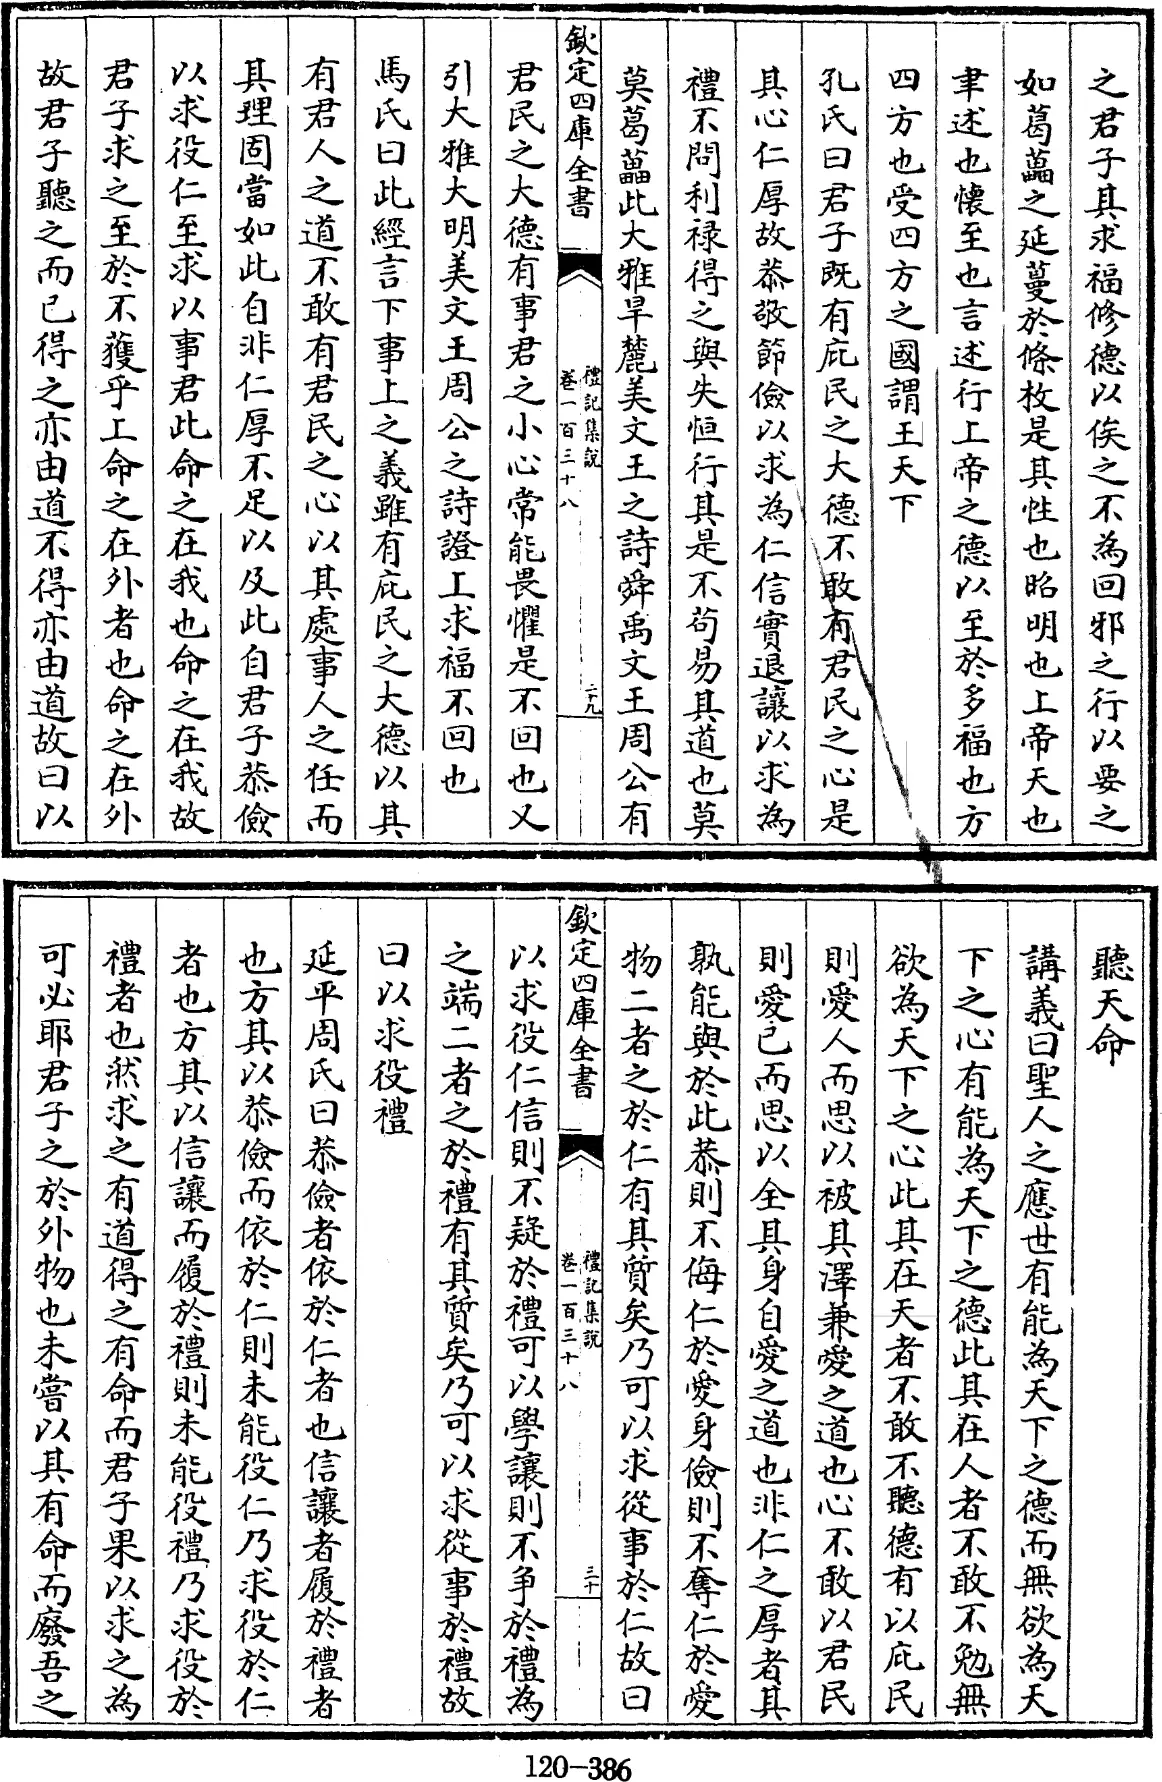 之君子其求福修德以俟之不為回邪之行以要之
如葛藟之延蔓於條枚是其性也昭明也上帝天也
聿述也懷至也言述行上帝之德以至於多福也方
四方也受四方之國謂王天下
孔氏曰君子既有庇民之大德不敢有君民之心是
其心仁厚故恭敬節儉以求為仁信實退讓以求為
禮不問利祿得之與失恒行其是不苟易其道也莫
莫葛藟此大雅旱麓美文王之詩舜禹文王周公有
欽定四庫全書
禮記集說
卷一百三十八
二九
君民之大德有事君之小心常能畏懼是不回也又
引大雅大明美文王周公之詩證上求福不回也
馬氏曰此經言下事上之義雖有庇民之大德以其
有君人之道不敢有君民之心以其處事人之任而
其理固當如此自非仁厚不足以及此自君子恭儉
以求役仁至求以事君此命之在我也命之在我故
君子求之至於不獲乎上命之在外者也命之在外
故君子聽之而已得之亦由道不得亦由道故曰以
聽天命
講義曰聖人之應世有能為天下之德而無欲為天
下之心有能為天下之德此其在人者不敢不勉無
欲為天下之心此其在天者不敢不聽德有以庇民
則愛人而思以被其澤兼愛之道也心不敢以君民
則愛己而思以全其身自愛之道也非仁之厚者其
孰能與於此恭則不侮仁於愛身儉則不奪仁於愛
物二者之於仁有其質矣乃可以求從事於仁故曰
欽定四庫全書
禮記集說
卷一百三十八
三十
以求役仁信則不疑於禮可以學讓則不爭於禮為
之端二者之於禮有其質矣乃可以求從事於禮故
曰以求役禮
延平周氏曰恭儉者依於仁者也信讓者履於禮者
也方其以恭儉而依於仁則未能役仁乃求役於仁
者也方其以信讓而履於禮則未能役禮乃求役於
禮者也然求之有道得之有命而君子果以求之為
可必耶君子之於外物也未嘗以其有命而廢吾之
120-386